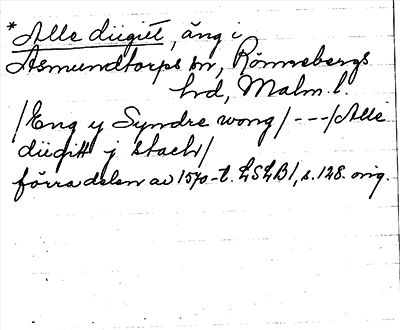 *Alle diigiit, äng i
Asmundtorps sn, Rönnebergs
hd, Malm. l.
/Eng y Syndre wong/ ---/Alle
diigitt j stack/
förra delen av 1570-t. LSLB1, s. 128. orig.